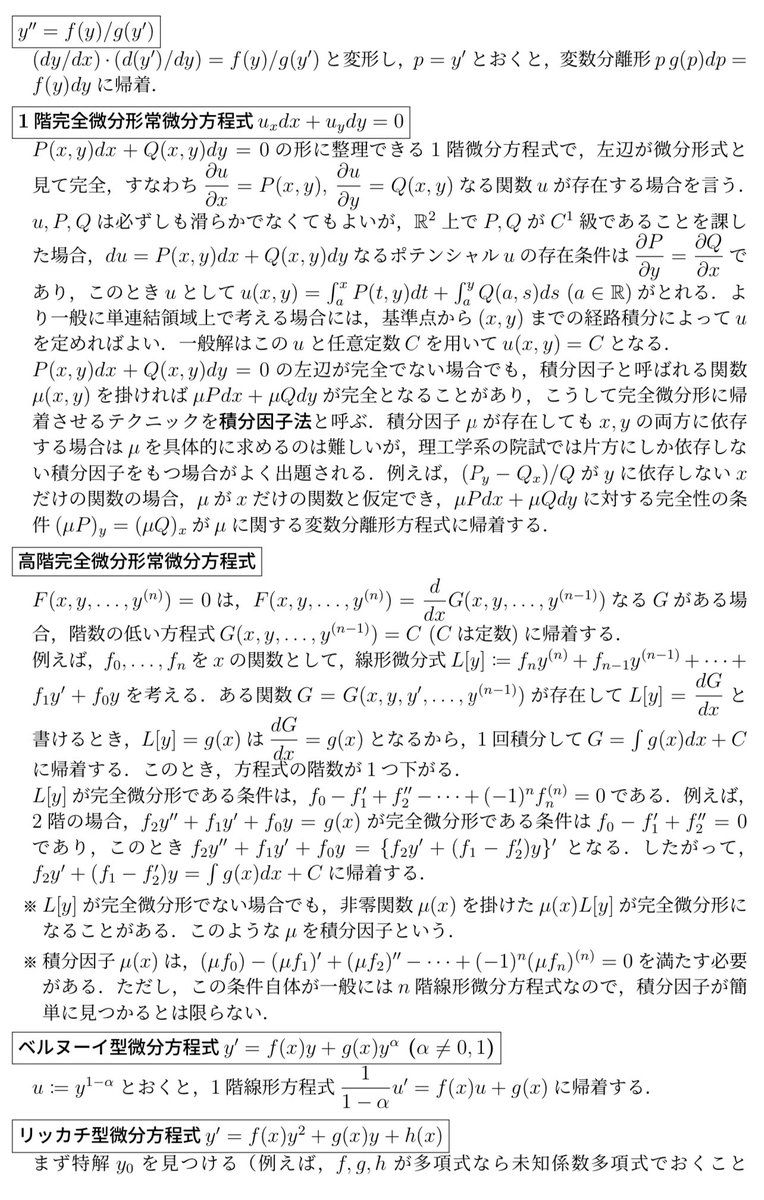 y″ = f(y)/g(y′)
(dy/dx)·(d(y′)/dy) = f(y)/g(y′) と変形し，p = y′ とおくと，変数分離形 p g(p)dp =
f(y)dy に帰着．
1 階完全微分形常微分方程式 uₓdx + u_y dy = 0
P(x, y)dx + Q(x, y)dy = 0 の形に整理できる 1 階微分方程式で，左辺が微分形式と
見て完全，すなわち ∂u/∂x = P(x, y), ∂u/∂y = Q(x, y) なる関数 u が存在する場合を言う．
u, P, Q は必ずしも滑らかでなくてもよいが，ℝ² 上で P, Q が C¹ 級であることを課し
た場合，du = P(x, y)dx + Q(x, y)dy なるポテンシャル u の存在条件は ∂P/∂y = ∂Q/∂x で
あり，このとき u として u(x, y) = ∫ₐˣ P(t, y)dt + ∫ₐʸ Q(a, s)ds (a ∈ ℝ) がとれる．よ
り一般に単連結領域上で考える場合には，基準点から (x, y) までの経路積分によって u
を定めればよい．一般解はこの u と任意定数 C を用いて u(x, y) = C となる．
P(x, y)dx + Q(x, y)dy = 0 の左辺が完全でない場合でも，積分因子と呼ばれる関数
μ(x, y) を掛ければ μPdx + μQdy が完全となることがあり，こうして完全微分形に帰
着させるテクニックを積分因子法と呼ぶ．積分因子 μ が存在しても x, y の両方に依存
する場合は μ を具体的に求めるのは難しいが，理工学系の院試では片方にしか依存しな
い積分因子をもつ場合がよく出題される．例えば，(P_y − Q_x)/Q が y に依存しない x
だけの関数の場合，μ が x だけの関数と仮定でき，μPdx + μQdy に対する完全性の条
件 (μP)_y = (μQ)_x が μ に関する変数分離形方程式に帰着する．
高階完全微分形常微分方程式
F(x, y, . . . , y⁽ⁿ⁾) = 0 は，F(x, y, . . . , y⁽ⁿ⁾) = d/dx G(x, y, . . . , y⁽ⁿ⁻¹⁾) なる G がある場
合，階数の低い方程式 G(x, y, . . . , y⁽ⁿ⁻¹⁾) = C (C は定数) に帰着する．
例えば，f₀, . . . , fₙ を x の関数として，線形微分式 L[y] ≔ fₙy⁽ⁿ⁾ + fₙ₋₁y⁽ⁿ⁻¹⁾ + · · · +
f₁y′ + f₀y を考える．ある関数 G = G(x, y, y′, . . . , y⁽ⁿ⁻¹⁾) が存在して L[y] = dG/dx と
書けるとき，L[y] = g(x) は dG/dx = g(x) となるから，1 回積分して G = ∫ g(x)dx + C
に帰着する．このとき，方程式の階数が 1 つ下がる．
L[y] が完全微分形である条件は，f₀ − f₁′ + f₂″ − · · · + (−1)ⁿfₙ⁽ⁿ⁾ = 0 である．例えば，
2 階の場合，f₂y″ + f₁y′ + f₀y = g(x) が完全微分形である条件は f₀ − f₁′ + f₂″ = 0
であり，このとき f₂y″ + f₁y′ + f₀y = {f₂y′ + (f₁ − f₂′)y}′ となる．したがって，
f₂y′ + (f₁ − f₂′)y = ∫ g(x)dx + C に帰着する．
※ L[y] が完全微分形でない場合でも，非零関数 μ(x) を掛けた μ(x)L[y] が完全微分形に
なることがある．このような μ を積分因子という．
※ 積分因子 μ(x) は，(μf₀) − (μf₁)′ + (μf₂)″ − · · · + (−1)ⁿ(μfₙ)⁽ⁿ⁾ = 0 を満たす必要
がある．ただし，この条件自体が一般には n 階線形微分方程式なので，積分因子が簡
単に見つかるとは限らない．
ベルヌーイ型微分方程式 y′ = f(x)y + g(x)y^α (α ≠ 0, 1)
u ≔ y^{1−α} とおくと，1 階線形方程式 1/(1 − α) u′ = f(x)u + g(x) に帰着する．
リッカチ型微分方程式 y′ = f(x)y² + g(x)y + h(x)
まず特解 y₀ を見つける（例えば，f, g, h が多項式なら未知係数多項式でおくこと